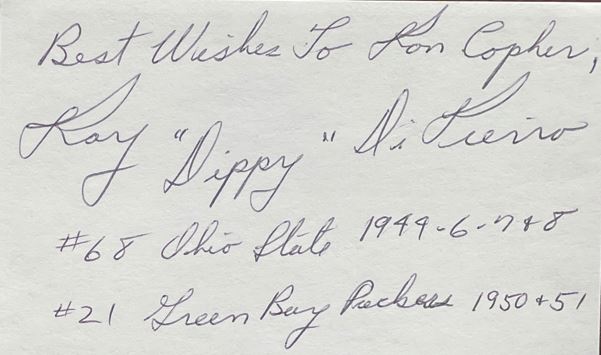 Best Wishes To Ron Copher,
Ray "Dippy" Di Pierro
#68 Ohio State 1944-6-7+8
#21 Green Bay Packers 1950+51